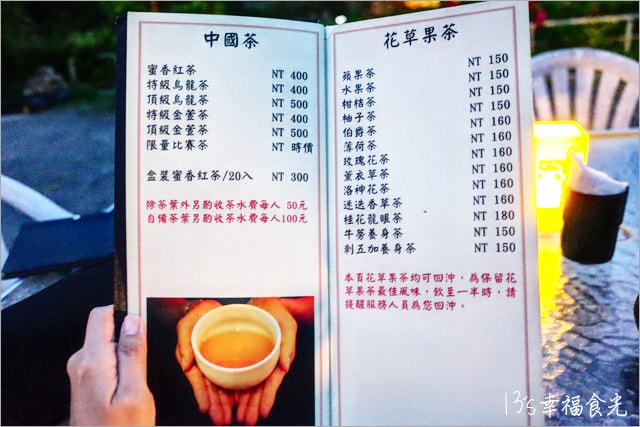 中國茶
蜜香紅茶 NT 400
特級烏龍茶 NT 400
頂級烏龍茶 NT 500
特級金萱茶 NT 400
頂級金萱茶 NT 500
限量比賽茶 NT 時價
盒裝蜜香紅茶/20入 NT 300
除茶葉外另酌收茶水費每人 50元
自備茶葉另酌收茶水費每人100元
花草果茶
蘋果茶 NT 150
水果茶 NT 150
柑桔茶 NT 150
柚子茶 NT 150
伯爵茶 NT 160
薄荷茶 NT 160
玫瑰花茶 NT 160
薰衣草茶 NT 160
洛神花茶 NT 160
迷迭香草茶 NT 160
桂花龍眼茶 NT 180
牛蒡養身茶 NT 150
刺五加養身茶 NT 150
本頁花草果茶均可回沖，為保留花
草果茶最佳風味，飲至一半時，請
提醒服務人員為您回沖。
13's幸福食光